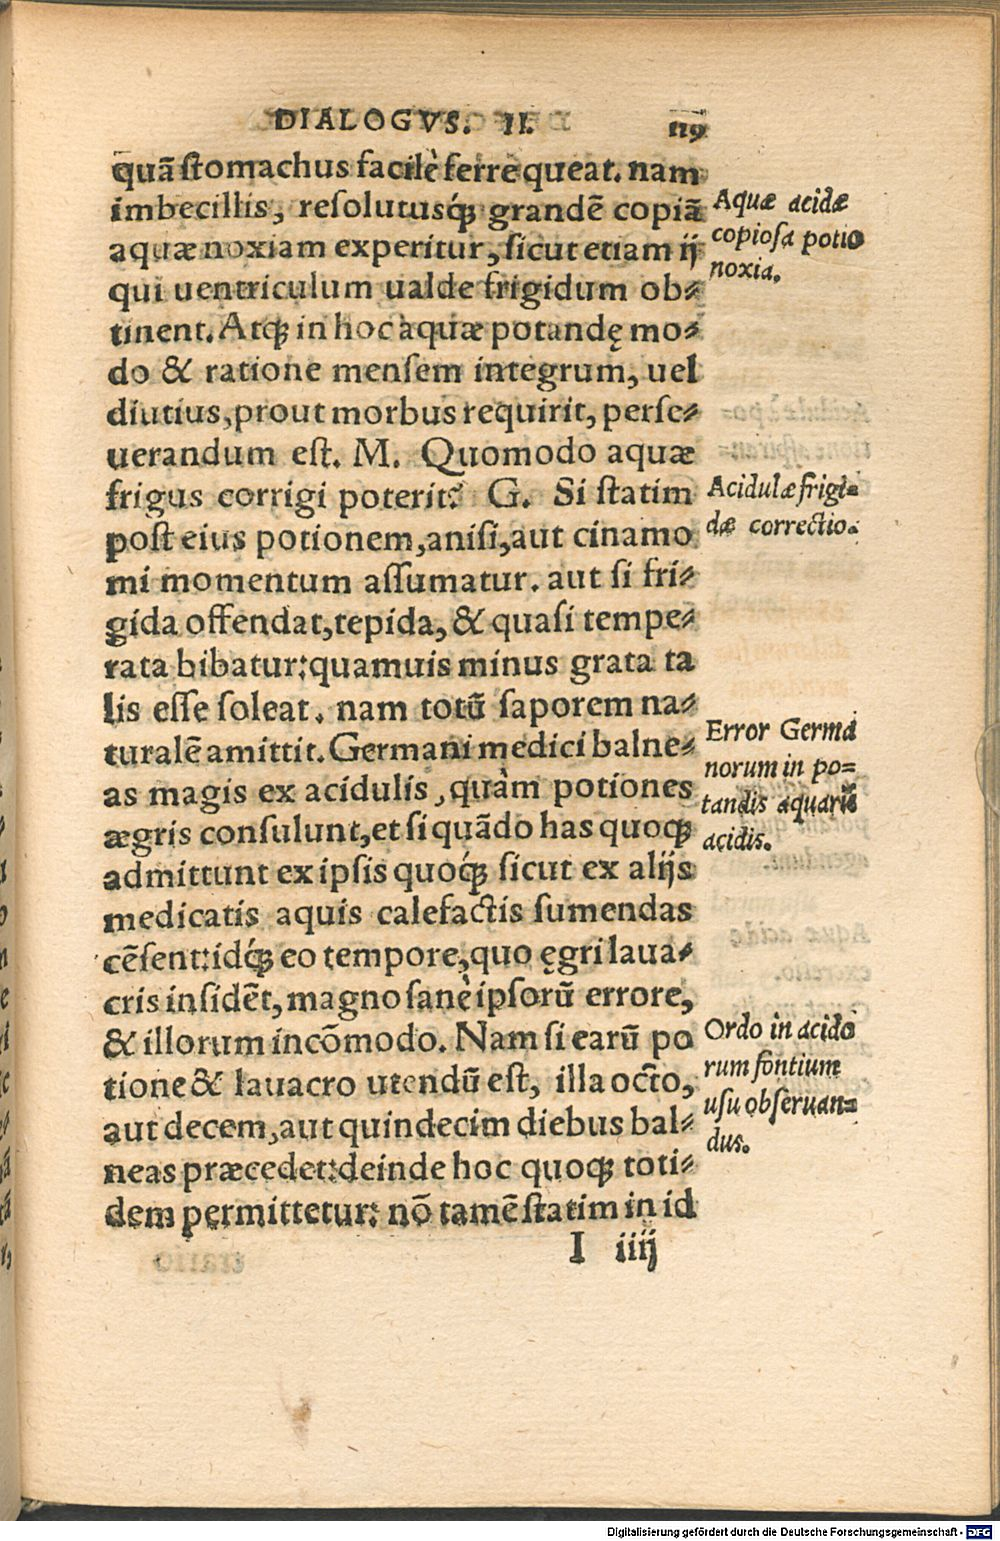 DIALOGVS. II. 119
quã stomachus facilè ferre queat. nam
imbecillis, resolutusq́ꝫ grandẽ copiã
aquæ noxiam experitur, sicut etiam ij
qui uentriculum ualde frigidum ob-
tinent. Atqꝫ in hoc aquæ potandę mo-
do & ratione mensem integrum, uel
diutius, prout morbus requirit, perse-
uerandum est. M. Quomodo aquæ
frigus corrigi poterit? G. Si statim
post eius potionem, anisi, aut cinamo
mi momentum assumatur. aut si fri-
gida offendat, tepida, & quasi tempe-
rata bibatur: quamuis minus grata ta
lis esse soleat. nam totũ saporem na-
turalẽ amittit. Germani medici balne-
as magis ex acidulis, quàm potiones
ægris consulunt, et si quãdo has quoqꝫ
admittunt ex ipsis quoq́ꝫ sicut ex alijs
medicatis aquis calefactis sumendas
cẽsent: idq́ꝫ eo tempore, quo ęgri laua-
cris insidẽt, magno sanè ipsorũ errore,
& illorum incõmodo. Nam si earũ po
tione & lauacro utendũ est, illa octo,
aut decem, aut quindecim diebus bal-
neas præcedet: deinde hoc quoqꝫ toti-
dem permittetur: nõ tamẽ statim in id
I iiij
Aquæ acidæ
copiosa potio
noxia.
Acidulæ frigi-
dæ correctio.
Error Germa
norum in po-
tandis aquarũ
acidis.
Ordo in acido
rum fontium
usu obseruan-
dus.
Digitalisierung gefördert durch die Deutsche Forschungsgemeinschaft - DFG